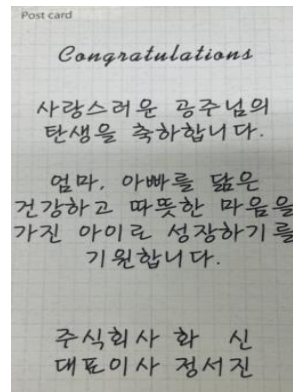 Post card
Congratulations
사랑스러운 공주님의
탄생을 축하합니다.
엄마, 아빠를 닮은
건강하고 따뜻한 마음을
가진 아이로 성장하기를
기원합니다.
주식회사 화 신
대표이사 정서진